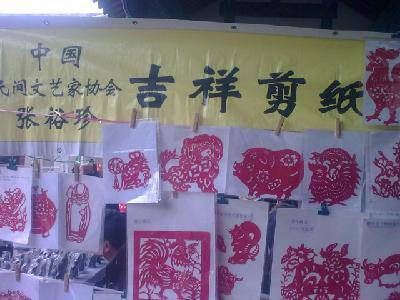 中国
民间文艺家协会
张裕珍
吉祥剪纸